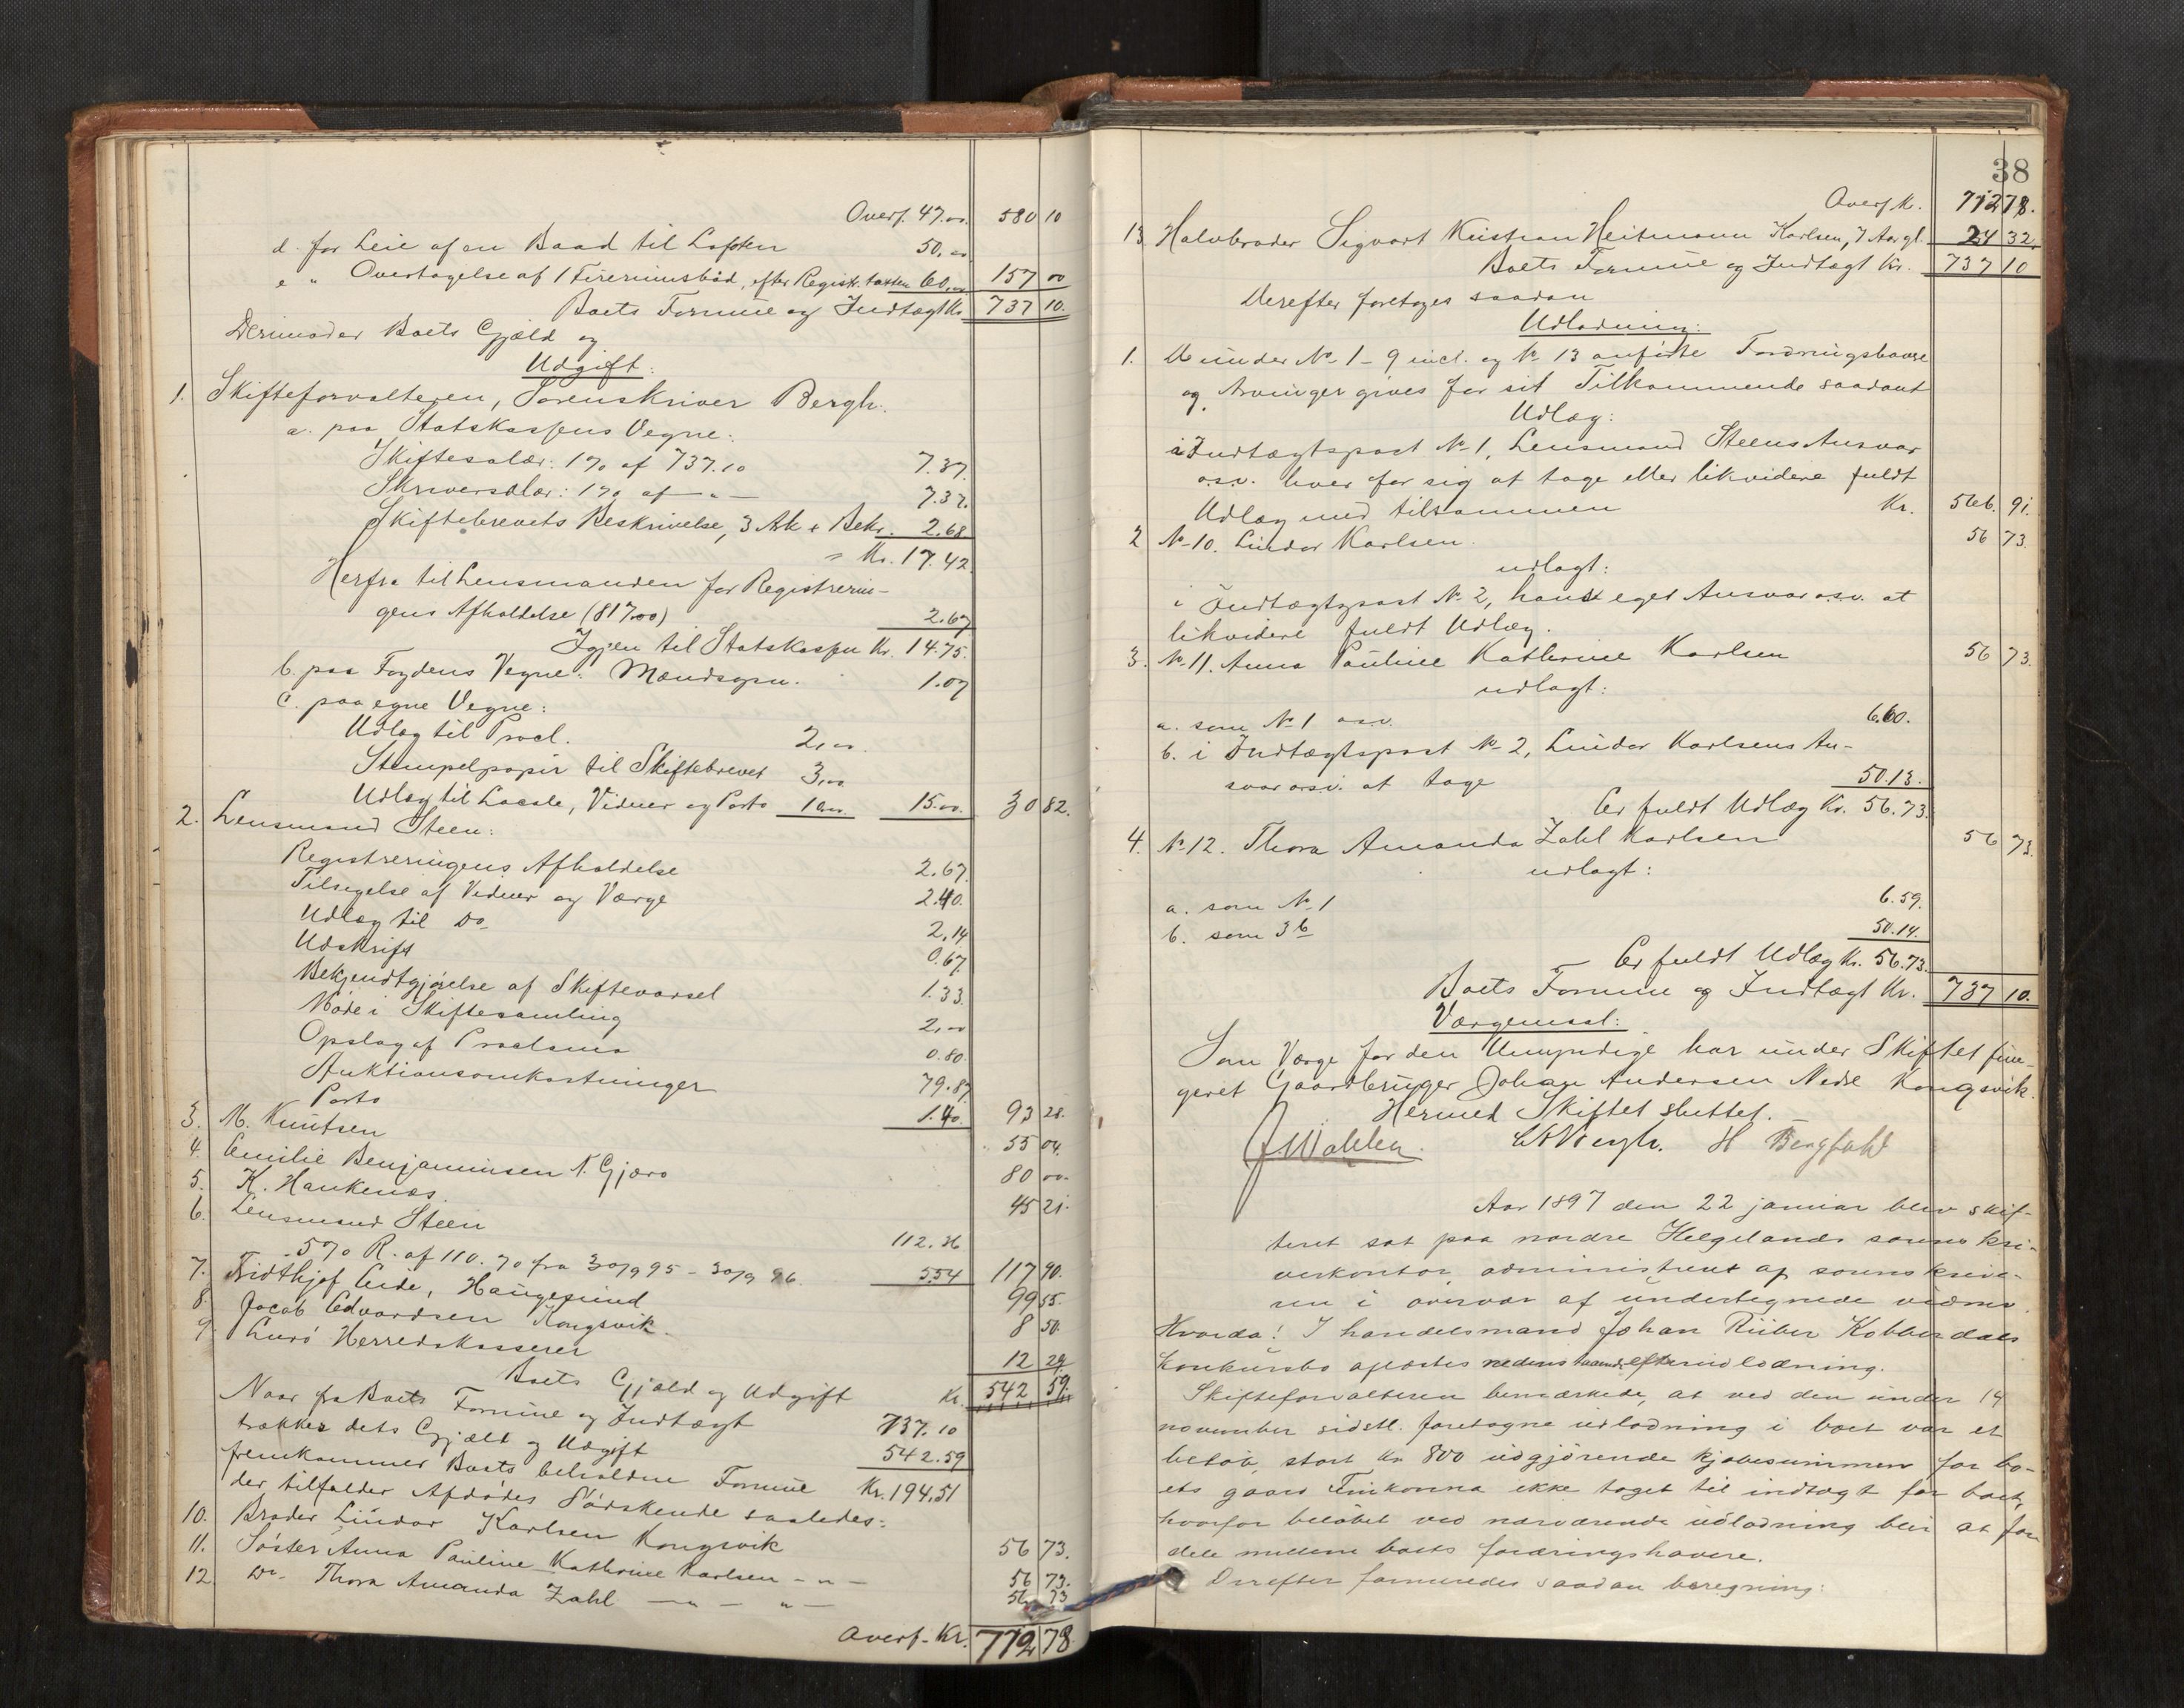 Overf. 47.00 580 10
d. for Leie af en Baad til Lofoten 50,00
e " Overtagelse af 1 Firerumsbåd, efter Registr. taxten 60,00 157 00
Boets Formue og Indtægt Kr. 737 10.
Derimod er Boets Gjæld og
Udgift:
1. Skifteforvalteren, Sorenskriver Bergh.
a. paa Statskassens Vegne:
Skiftesalær: 1% af 737.10 7.37.
Skriversalær: 1% af —"— 7.37.
Skiftebrevets Beskrivelse, 3 Ark + Bekr. 2.68
= Kr. 17.42.
Herfra til Lensmanden for Registrerin-
gens Afholdelse (817.00) 2.67
Igjen til Statskassen Kr. 14.75.
b. paa Fogdens Vegne: 1.07
c. paa egne Vegne:
Udlæg til Procl. 2,00.
Stempelpapir til Skiftebrevet 3,00
Udlæg til Locale, Vidner og Porto 10,00 15.00. 30 82.
2. Lensmand Steen:
Registreringens Afholdelse 2.67.
Tilsigelse af Vidner og Værge 2.40.
Udlæg til Do. 2,14
Udskrift 0.67
Bekjendtgjørelse af Skiftevarsel 1.33.
Møde i Skiftesamling 2,00
Opslag af Proclama 0.80.
Auktionsomkostninger 79.87
Porto 1.40. 93 28.
3. M. Knutsen 55 04.
4. Emilie Benjaminsen N. Gjæro 80 00.
5. K. Haukenæs. 45 21.
6. Lensmand Steen 112.36
5% R. af 110.70 fra 30/9 95 - 30/9 96. 5.54 117 90.
7. Fridthjof Eide, Haugesund 99 55.
8. Jacob Edvardsen Kongsvik. 8 50.
9. Lurö Herredskasserer 12 29
Boets Gjæld og Udgift Kr. 542 59.
Naar fra Boets Formue og Indtægt 737.10
trækkes dets Gjæld og Udgift 542.59
fremkommer Boets beholdne Formue Kr. 194.51
der tilfalder Afdödes Södskende saaledes:
10. Broder Lindor Karlsen Kongsvik 56 73.
11. Söster Anna Pauline Kathrine Karlsen —"— 56 73.
12. Do. Thora Amanda Zahl —"— "— 56 73
Overf. Kr. 712 78
38
Overf. Kr. 712 78.
13. Halvbroder Sigvart Kristian Heitmann Karlsen, 7 Aar gl. 24 32.
Boets Formue og Indtægt Kr. 737 10
Derefter foretages saadan
Udlodning:
1. De under No 1 - 9 incl. og No 13 anförte Fordringshavere
og Arvinger gives for sit Tilkommende saadant
Udlæg:
i Indtægtspost No 1, Lensmand Steens Ansvar
o.s.v. hver for sig at tage eller likvidere fuldt
Udlæg med tilsammen Kr. 566. 91.
2 No 10. Lindor Karlsen. 56 73.
udlagt:
i Indtægtspost No 2, hans eget Ansvar o.s.v. at
likvidere fuldt Udlæg.
3. No 11. Anna Pauline Kathrine Karlsen 56 73.
udlagt:
a. som No 1 o.s.v. 6.60.
b. i Indtægtspost No 2, Lindor Karlsens An-
svar o.s.v. at tage 50.13.
Er fuldt Udlæg Kr. 56.73.
4. No 12. Thora Amanda Zahl Karlsen 56 73.
udlagt:
a. som No 1 6.59.
b. som 3 b 50.14.
Er fuldt Udlæg Kr. 56.73.
Boets Formue og Indtægt Kr. 737 10.
Værgemaal:
Som Værge for den Umyndige har under Skiftet fun-
geret Gaardbruger Johan Andersen Nedre Kongsvik.
Hermed Skiftet sluttet.
Bergh. H Bergfald
Aar 1897 den 22 januar blev skif-
teret sat paa nordre Helgelands sorenskri-
verkontor administreret af sorenskrive-
ren i overvær af undertegnede vidner.
Hvorda! I handelsmand Johan Riiber Kobberdals
konkursbo aflæstes nedenstaaende efterudlodning.
Skifteforvalteren bemærkede, at ved den under 14
november sidstl. foretagne udlodning i boet var et
beløb, stort kr. 800 udgjörende kjøbesummen for bo-
ets gaard Finkonna ikke taget til indtægt for boet,
hvorfor belöbet ved nærværende udlodning blir at for-
dele mellem boets fordringshavere.
Derefter formeredes saadan beregning: